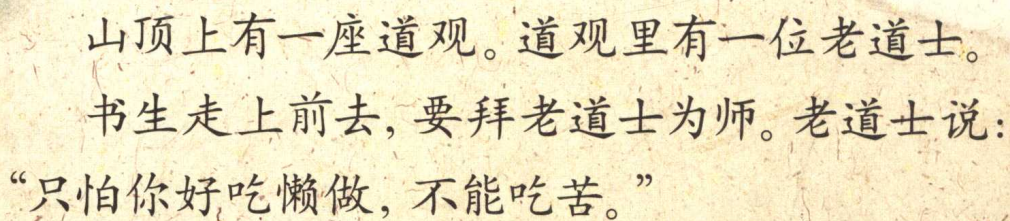 山顶上有一座道观。道观里有一位老道士。
书生走上前去，要拜老道士为师。老道士说：
“只怕你好吃懒做，不能吃苦。”